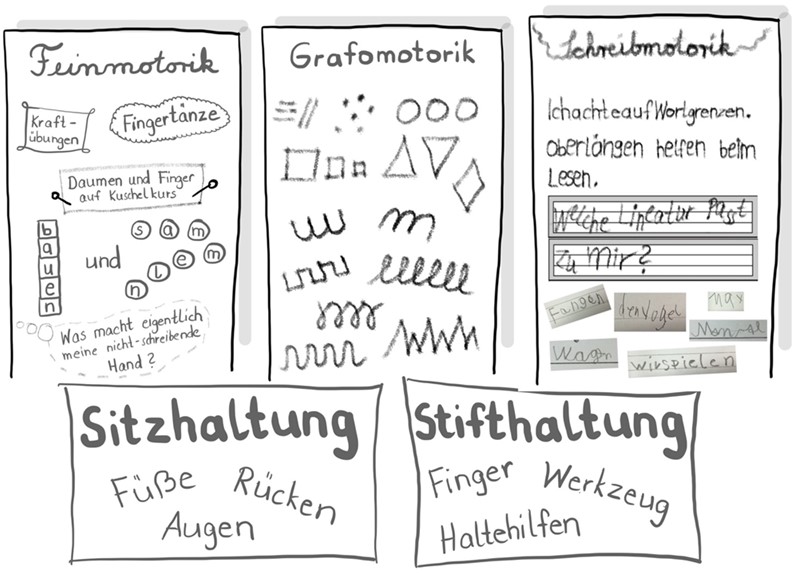 Feinmotorik
Kraft-
übungen
Fingertänze
Daumen und Finger
auf Kuschelkurs
bauen
und
sammeln
Was macht eigentlich
meine nicht-schreibende
Hand?
Grafomotorik
Schreibmotorik
Ich achte auf Wortgrenzen.
Oberlängen helfen beim
Lesen.
Welche Lineatur Passt
zu Mir?
Fangen
den Vogel
Max
Wagen
wirspielen
Sitzhaltung
Füße Rücken
Augen
Stifthaltung
Finger Werkzeug
Haltehilfen